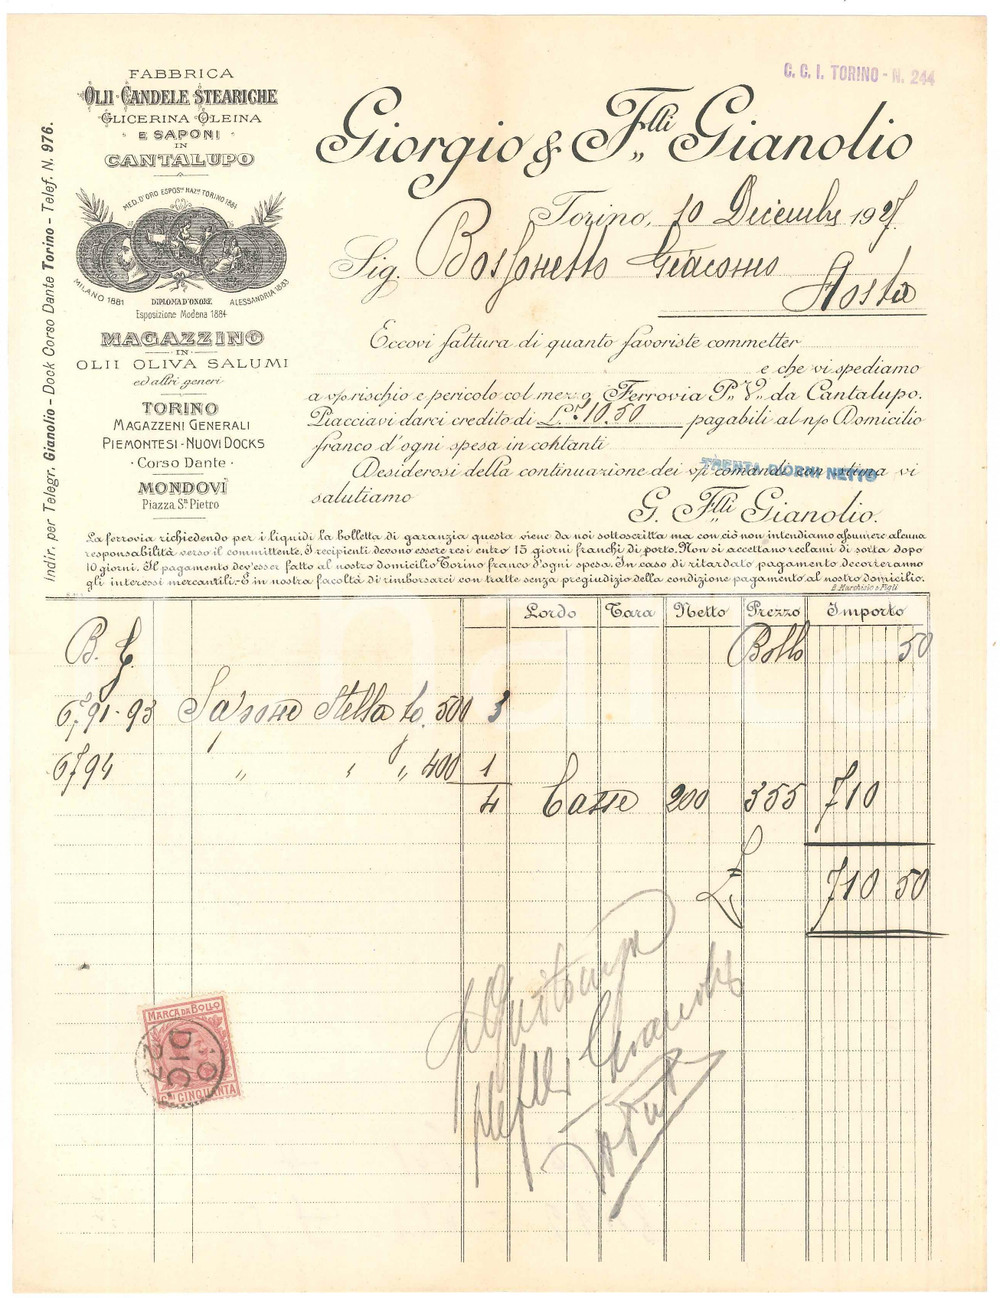 C. C. I. TORINO - N. 244
FABBRICA
OLII CANDELE STEARICHE
GLICERINA OLEINA
E SAPONI
IN
CANTALUPO
MED. D'ORO ESPOS.ne NAZ.le TORINO 1881
MILANO 1881
DIPLOMA D'ONORE
ALESSANDRIA 1883
Esposizione Modena 1884
MAGAZZINO
IN
OLII OLIVA SALUMI
ed altri generi
TORINO
MAGAZZENI GENERALI
PIEMONTESI - NUOVI DOCKS
- Corso Dante -
MONDOVÌ
Piazza Sn Pietro
Indir. per Telegr. Gianolio - Dock Corso Dante Torino - Telef. N. 976.
Giorgio & F.lli Gianolio
Torino, 10 Decembre 1927.
Sig. Giacomo
Aosta
Eccovi fattura di quanto favoriste commetter
e che vi spediamo
a v/o rischio e pericolo col mezzo Ferrovia P. V. da Cantalupo.
Piacciavi darci credito di L. 710.50 pagabili al n/o Domicilio
franco d'ogni spesa in contanti
Desiderosi della continuazione dei v/i comandi con stima vi
TRENTA GIORNI NETTO
salutiamo
G. F.lli Gianolio.
La ferrovia richiedendo per i liquidi la bolletta di garanzia questa viene da noi sottoscritta ma con ciò non intendiamo assumere alcuna
responsabilità verso il committente. I recipienti devono essere resi entro 15 giorni franchi di porto. Non si accettano reclami di sorta dopo
10 giorni. Il pagamento dev'esser fatto al nostro domicilio Torino franco d'ogni spesa. In caso di ritardato pagamento decorreranno
gli interessi mercantili. È in nostra facoltà di rimborsarci con tratte senza pregiudizio della condizione pagamento al nostro domicilio.
B. Marchisio e Figli
Lordo Tara Netto Prezzo Importo
B. G. Bollo 50
6791-93 Sapone Stella 500 3
6794 " " " 400 1
4 Casse 200 355 710
£ 710 50
MARCA DA BOLLO
10 DIC 27
CMI CINQUANTA